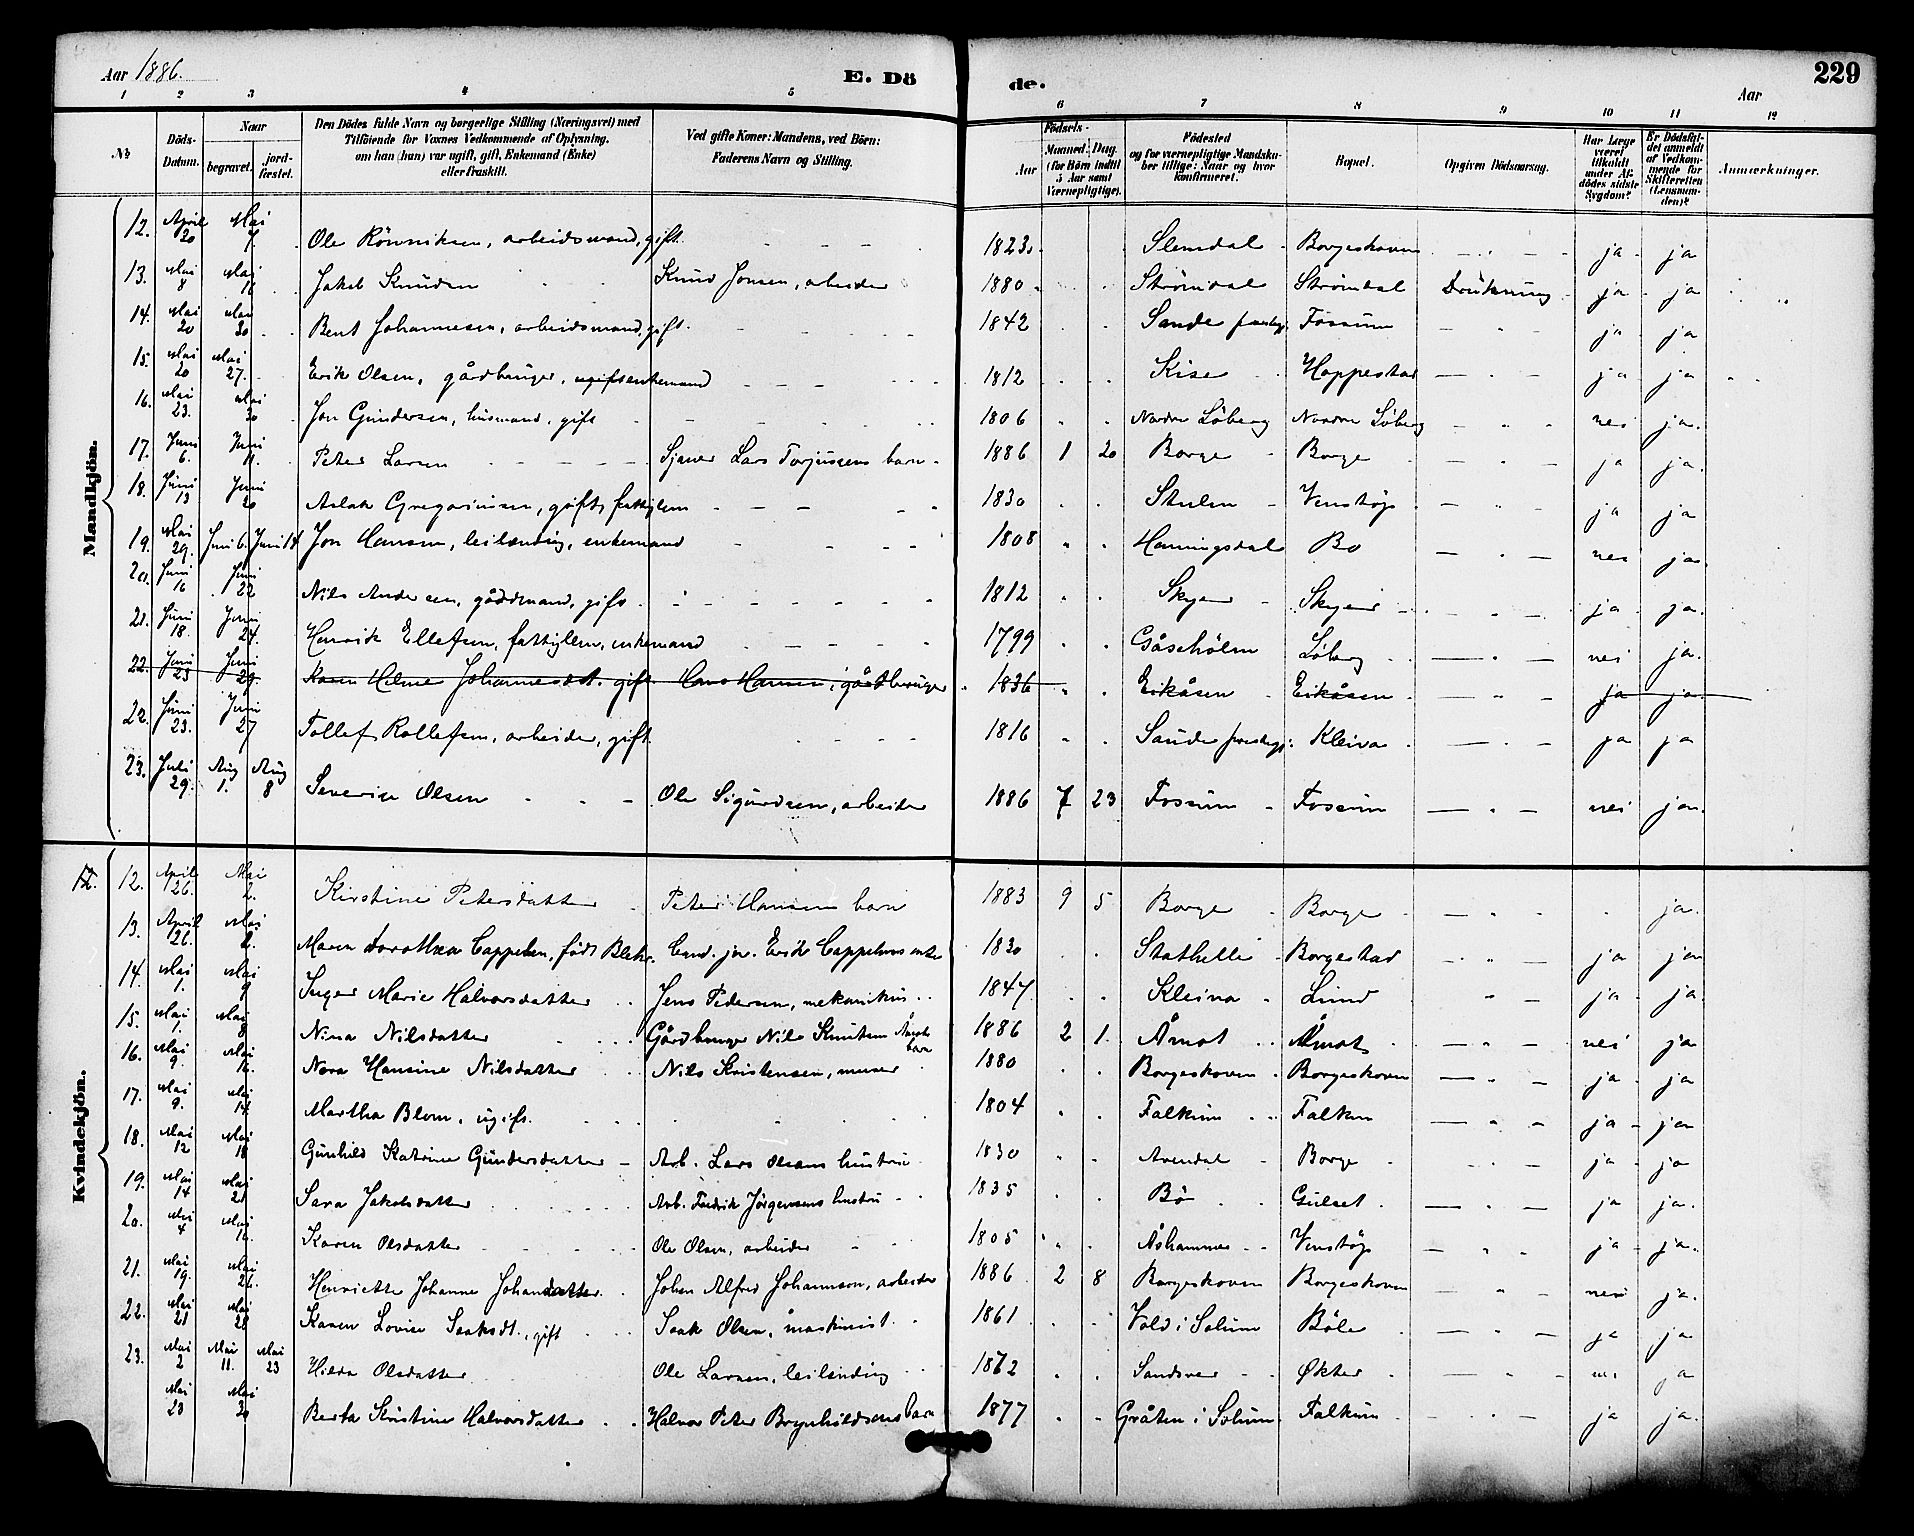 Aar 1886. E. Dö de. Aar 229
1 2 3 4 5 6 7 8 9 10 11 12
No Döds-Datum. Naar begravet. jordfæstet. Den Dödes fulde Navn og borgerlige Stilling (Næringsvei) med Tilföiende for Voxnes Vedkommende af Oplysning, om han (hun) var ugift, gift, Enkemand (Enke) eller fraskilt. Ved gifte Koner: Mandens, ved Börn: Faderens Navn og Stilling. Födsels- Aar Maaned Dag (for Börn indtil 5 Aar samt Værnepligtige). Födested og for værnepligtige Mandskaber tillige: Naar og hvor konfirmeret. Bopæl. Opgiven Dödsaarsag. Har Læge været tilkaldt under Afdödes sidste Sygdom? Er Dödsfaldet anmeldt af Vedkommende for Skifteretten (Lensmanden)? Anmærkninger.
Mandkjön.
12. April 20 Mai 7 Ole Rönniksen, arbeidsmand, gift. 1823 Slemdal Borgeskoven ja ja
13. Mai 8 Mai 16 Jakob Knudsen Knud Jonsen, arbeider 1880 Strömdal Strömdal Drukning ja ja
14. Mai 20 Mai 30 Bent Johannesen, arbeidsmand, gift. 1842 Sande præstegj. Fossum ja ja
15. Mai 20 Mai 27. Erik Olsen, gårdbruger, ugift enkemand 1812 Kise Hoppestad ja ja
16. Mai 23. Mai 30 Jon Gundersen, husmand, gift 1806 Nordre Löberg Nordre Löberg nei ja.
17. Juni 6. Juni 11. Peter Larsen Sjauer Lars Torjussens barn 1886 1 20 Borge Borge ja ja.
18. Juni 13 Juni 20 Aslak Gregoriusen, gift, fattiglem 1830 Stulen Venstöp ja ja
19. Mai 29. Juni 6. Juni 18 Jon Hansen, leilænding, enkemand 1808 Hanningsdal Bö nei ja.
20. Juni 16 Juni 22 Nils Andersen, gårdmand, gift 1812 Skyer Skyer ja ja.
21. Juni 18. Juni 24. Henrik Ellefsen, fattiglem, enkemand 1799 Gåseholm Löberg nei ja.
22. Juni 23 Juni 29. Karen Helene Johannesdt. gift Hans Hansen, gårdbruger 1836 Eikåsen Eikåsen ja ja
22. Juni 23. Juni 27 Tollef Rollefsen, arbeider, gift. 1816 Sande præstegj. Kleiva ja ja
23. Juli 29. Aug 1. Aug 8 Severin Olsen Ole Sigurdsen, arbeider 1886 7 23 Fossum Fossum nei ja.
Kvindekjön.
12. 12. April 26. Mai 2. Kirstine Petersdatter Peter Hansens barn 1883 9 5 Borge Borge ja.
13. April 26. Mai 2. Maren Dorothea Cappelen, född Blehr. Cand. jur. Erik Cappelens enke 1830 Stathelle Borgestad ja ja
14. Mai 1. Mai 9 Inger Marie Halvorsdatter Jens Pedersen, mekanikus 1847 Kleiva Lund ja ja
15. Mai 1. Mai 8 Nina Nilsdatter Gårdbruger Nils Knutsen Åmots barn 1886 2 1. Åmot Åmot nei ja
16. Mai 9. Mai 16. Nora Hansine Nilsdatter Nils Kristensen, murer 1880 Borgeskoven Borgeskoven ja ja
17. Mai 9. Mai 14. Martha Blom, ugift. 1804 Falkum Falkum ja ja
18. Mai 12 Mai 18 Gunhild Katrine Gundersdatter Arb. Lars Olsens hustru 1830 Arendal Borge ja ja
19. Mai 14 Mai 21 Sara Jakobsdatter Arb. Fredrik Jörgensens hustru 1835 Bö Gulset ja ja.
20. Mai 4 Mai 16. Karen Olsdatter Ole Olsen, arbeider 1805 Åshammer Venstöp ja ja.
21. Mai 19. Mai 26. Henriette Johanne Johandatter Johan Alfred Johannson, arbeider 1886 2 8 Borgeskoven Borgeskoven nei ja.
22. Mai 21 Mai 28 Karen Lovise Isaksdt., gift Isak Olsen, maskinist 1861 Vold i Solum Böle ja ja
23. Mai 2 Mai 11. Mai 23 Hilda Olsdatter Ole Larsen, leilending 1872 Sandsver Økter nei ja
Mai 23 Mai 30 Berta Kristine Halvorsdatter Halvor Peter Brynhildsens barn 1877 Gråten i Solum Falkum ja ja.